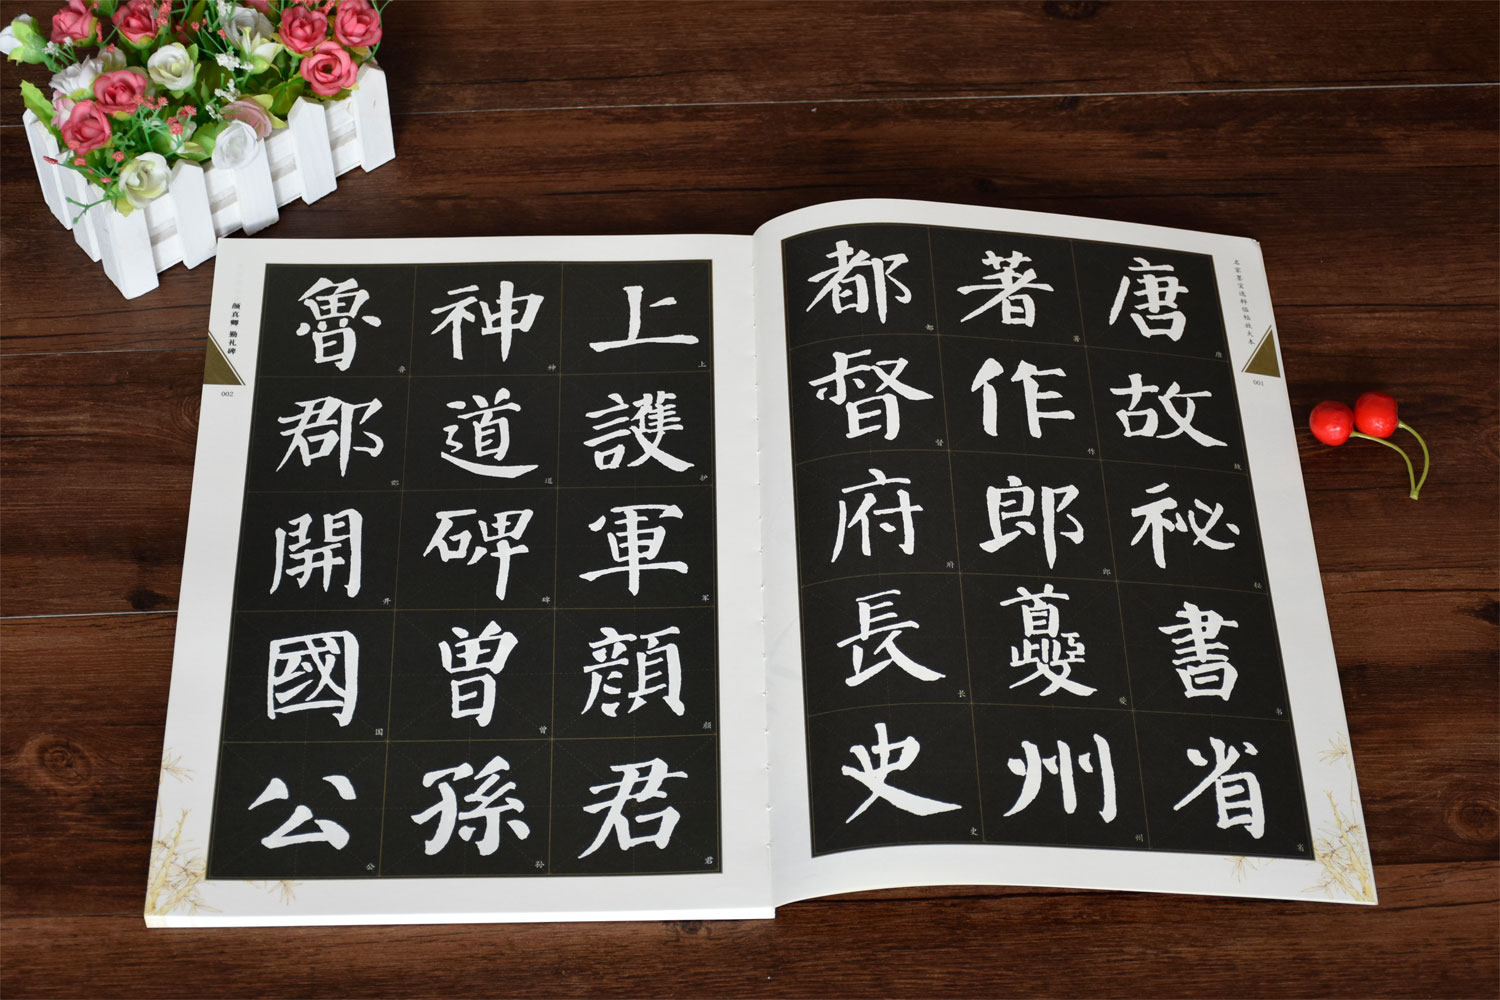 名家墨宝选粹临帖放大本
001
唐故祕書省
唐故秘书省
著作郎夔州
著作郎夔州
都督府長史
都督府长史
上護軍顏君
上护军颜君
神道碑曾孫
神道碑曾孙
魯郡開國公
鲁郡开国公
颜真卿 勤礼碑
002